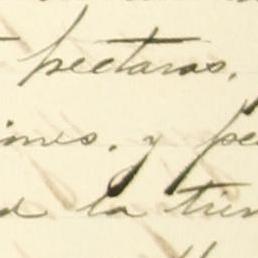 hectaras.
iones. y pe
d la tier